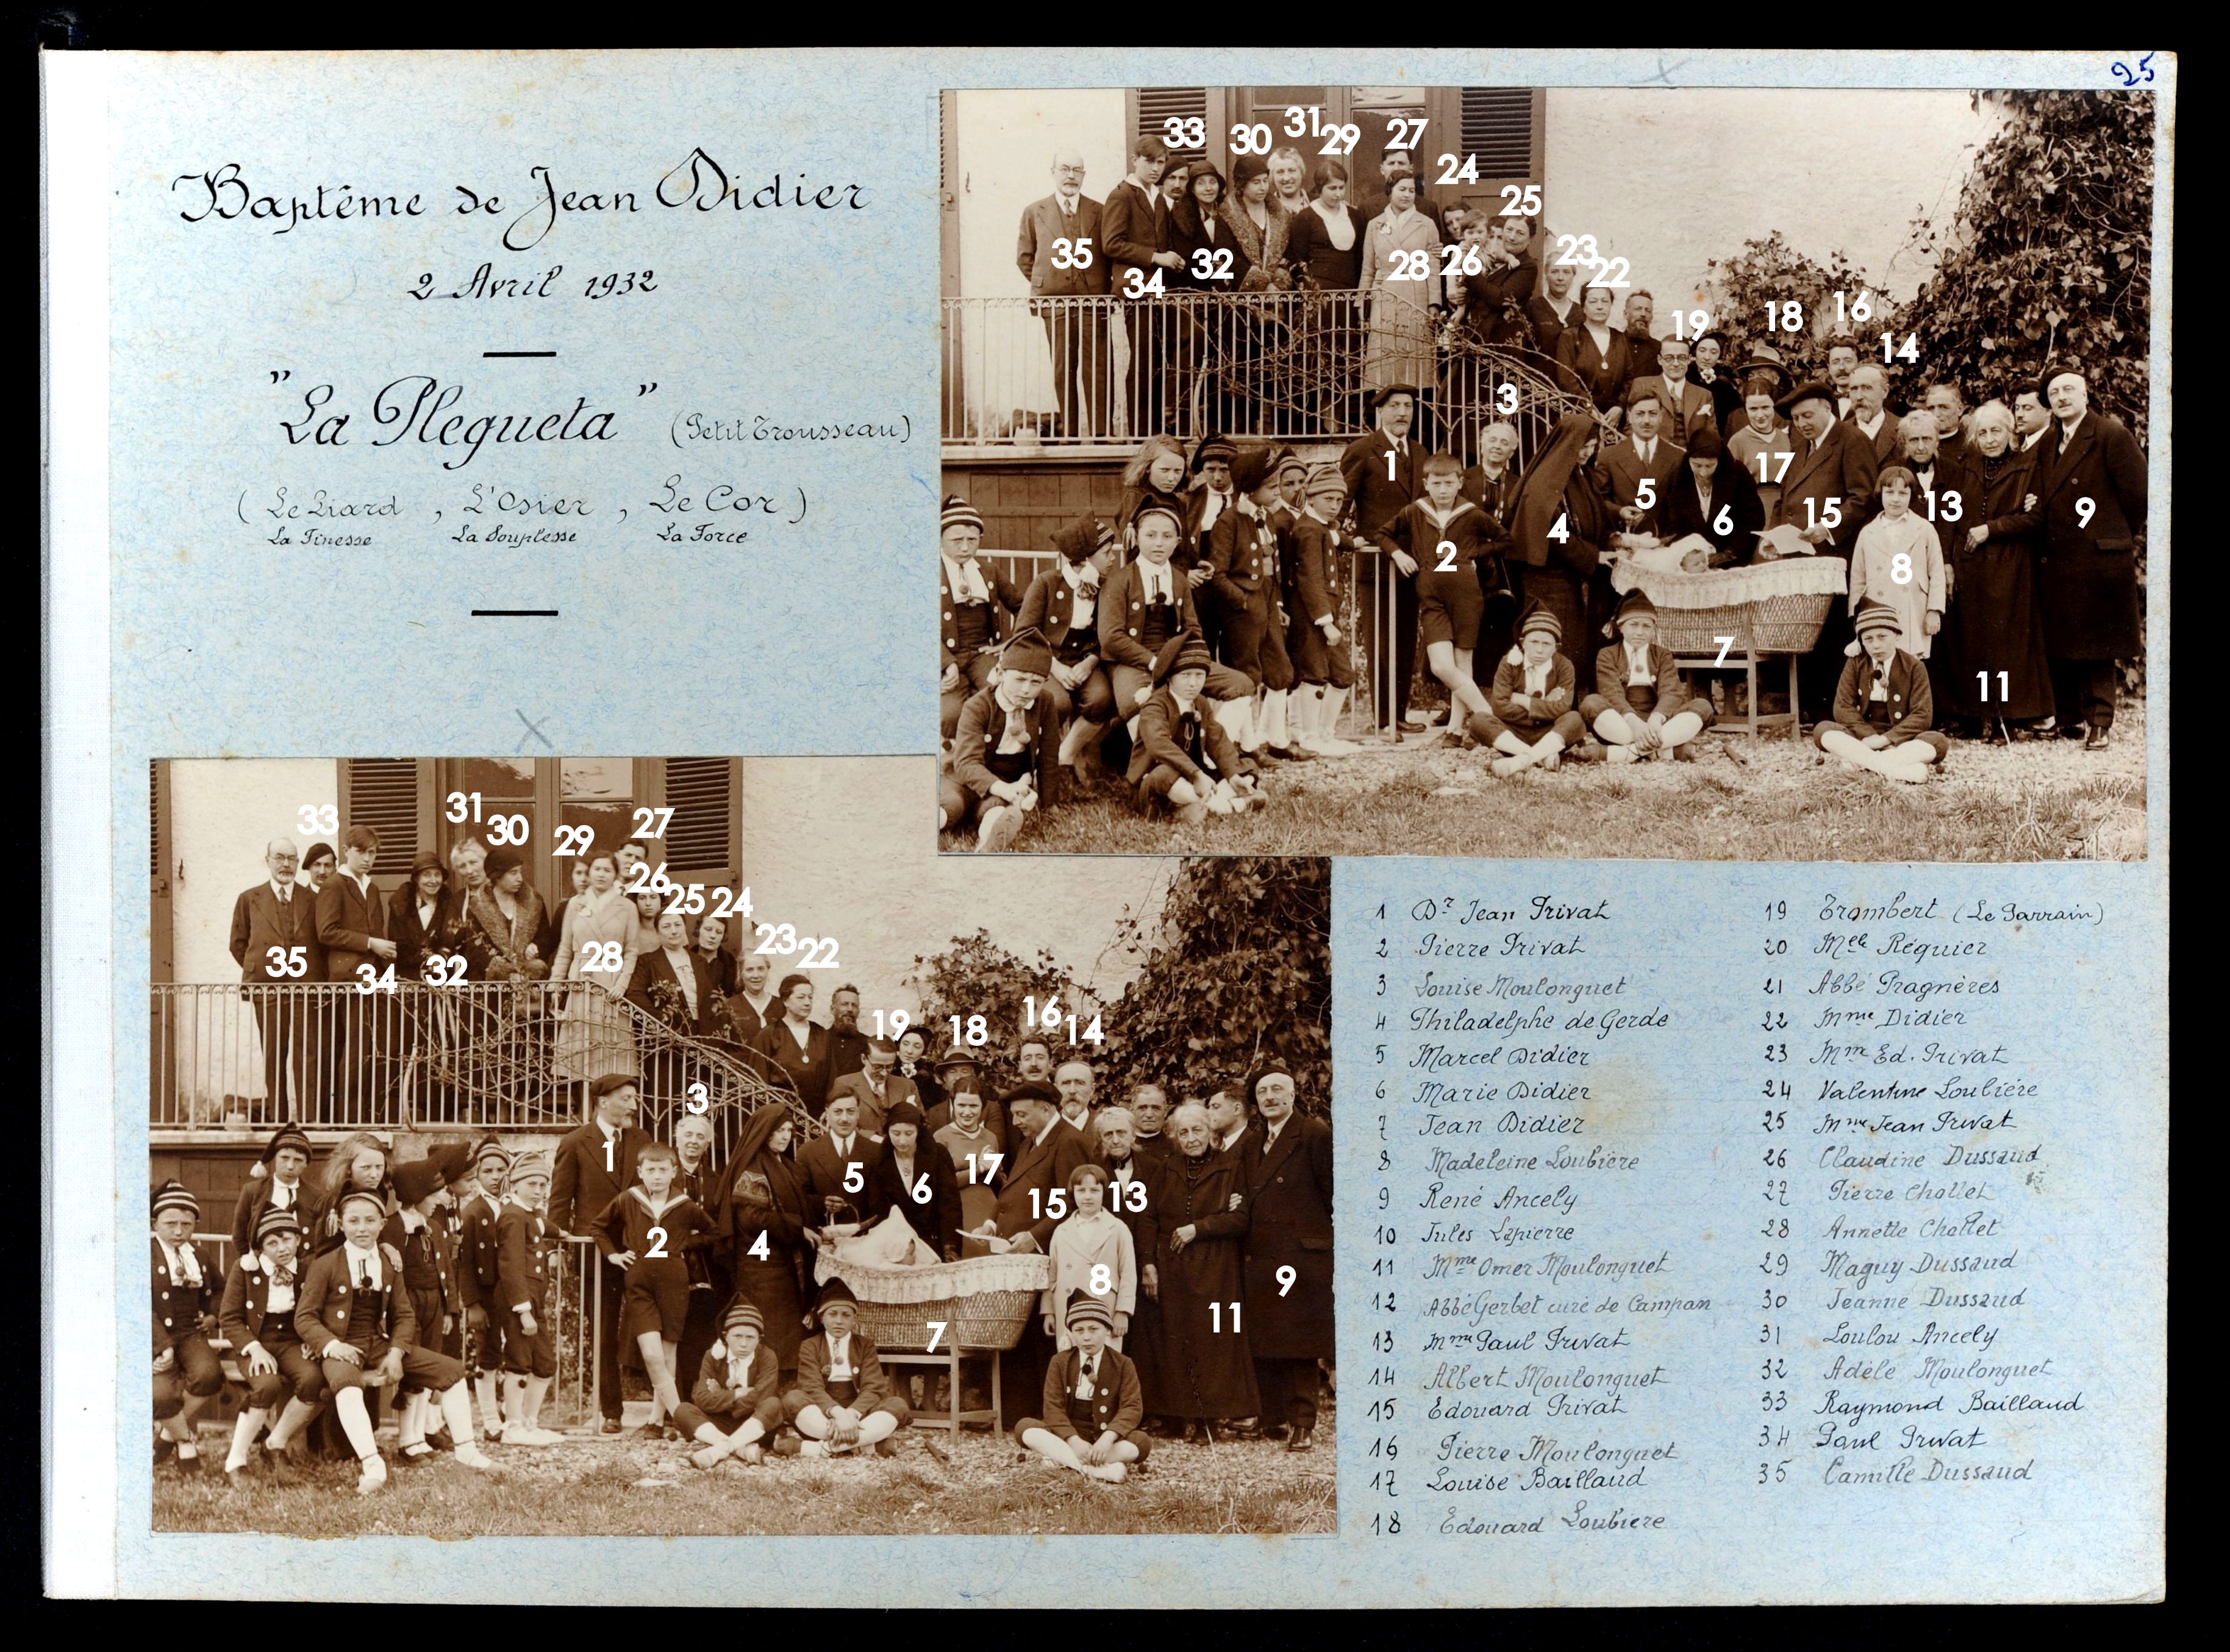 25
Baptême de Jean Didier
2 Avril 1932
"La Plegueta" (Petit Trousseau)
(Le Liard, L'Osier, Le Cor)
La Finesse La Souplesse La Force
33 30 31 29 27
24
25
35 34 32 28 26 23 22
19 18 16
14
3
1 17
2 4 5 6 15 13 9
8
7
11
33 31 30 29 27
26 25 24
35 34 32 28 23 22
19 18 16 14
3
1 5 6 17 15 13
2 4
8 9
7 11
1 Dr Jean Privat
2 Pierre Privat
3 Louise Moulonguet
4 Philadelphe de Gerde
5 Marcel Didier
6 Marie Didier
7 Jean Didier
8 Madeleine Loubière
9 René Ancely
10 Jules Lapierre
11 Mme Omer Moulonguet
12 Abbé Gerbet curé de Campan
13 Mme Paul Privat
14 Albert Moulonguet
15 Edouard Privat
16 Pierre Moulonguet
17 Louise Baillaud
18 Edouard Loubière
19 Trombert (Le Parrain)
20 Melle Réquier
21 Abbé Pragnères
22 Mme Didier
23 Mme Ed. Privat
24 Valentine Loubière
25 Mme Jean Privat
26 Claudine Dussaud
27 Pierre Chollet
28 Annette Chollet
29 Maguy Dussaud
30 Jeanne Dussaud
31 Loulou Ancely
32 Adèle Moulonguet
33 Raymond Baillaud
34 Paul Privat
35 Camille Dussaud